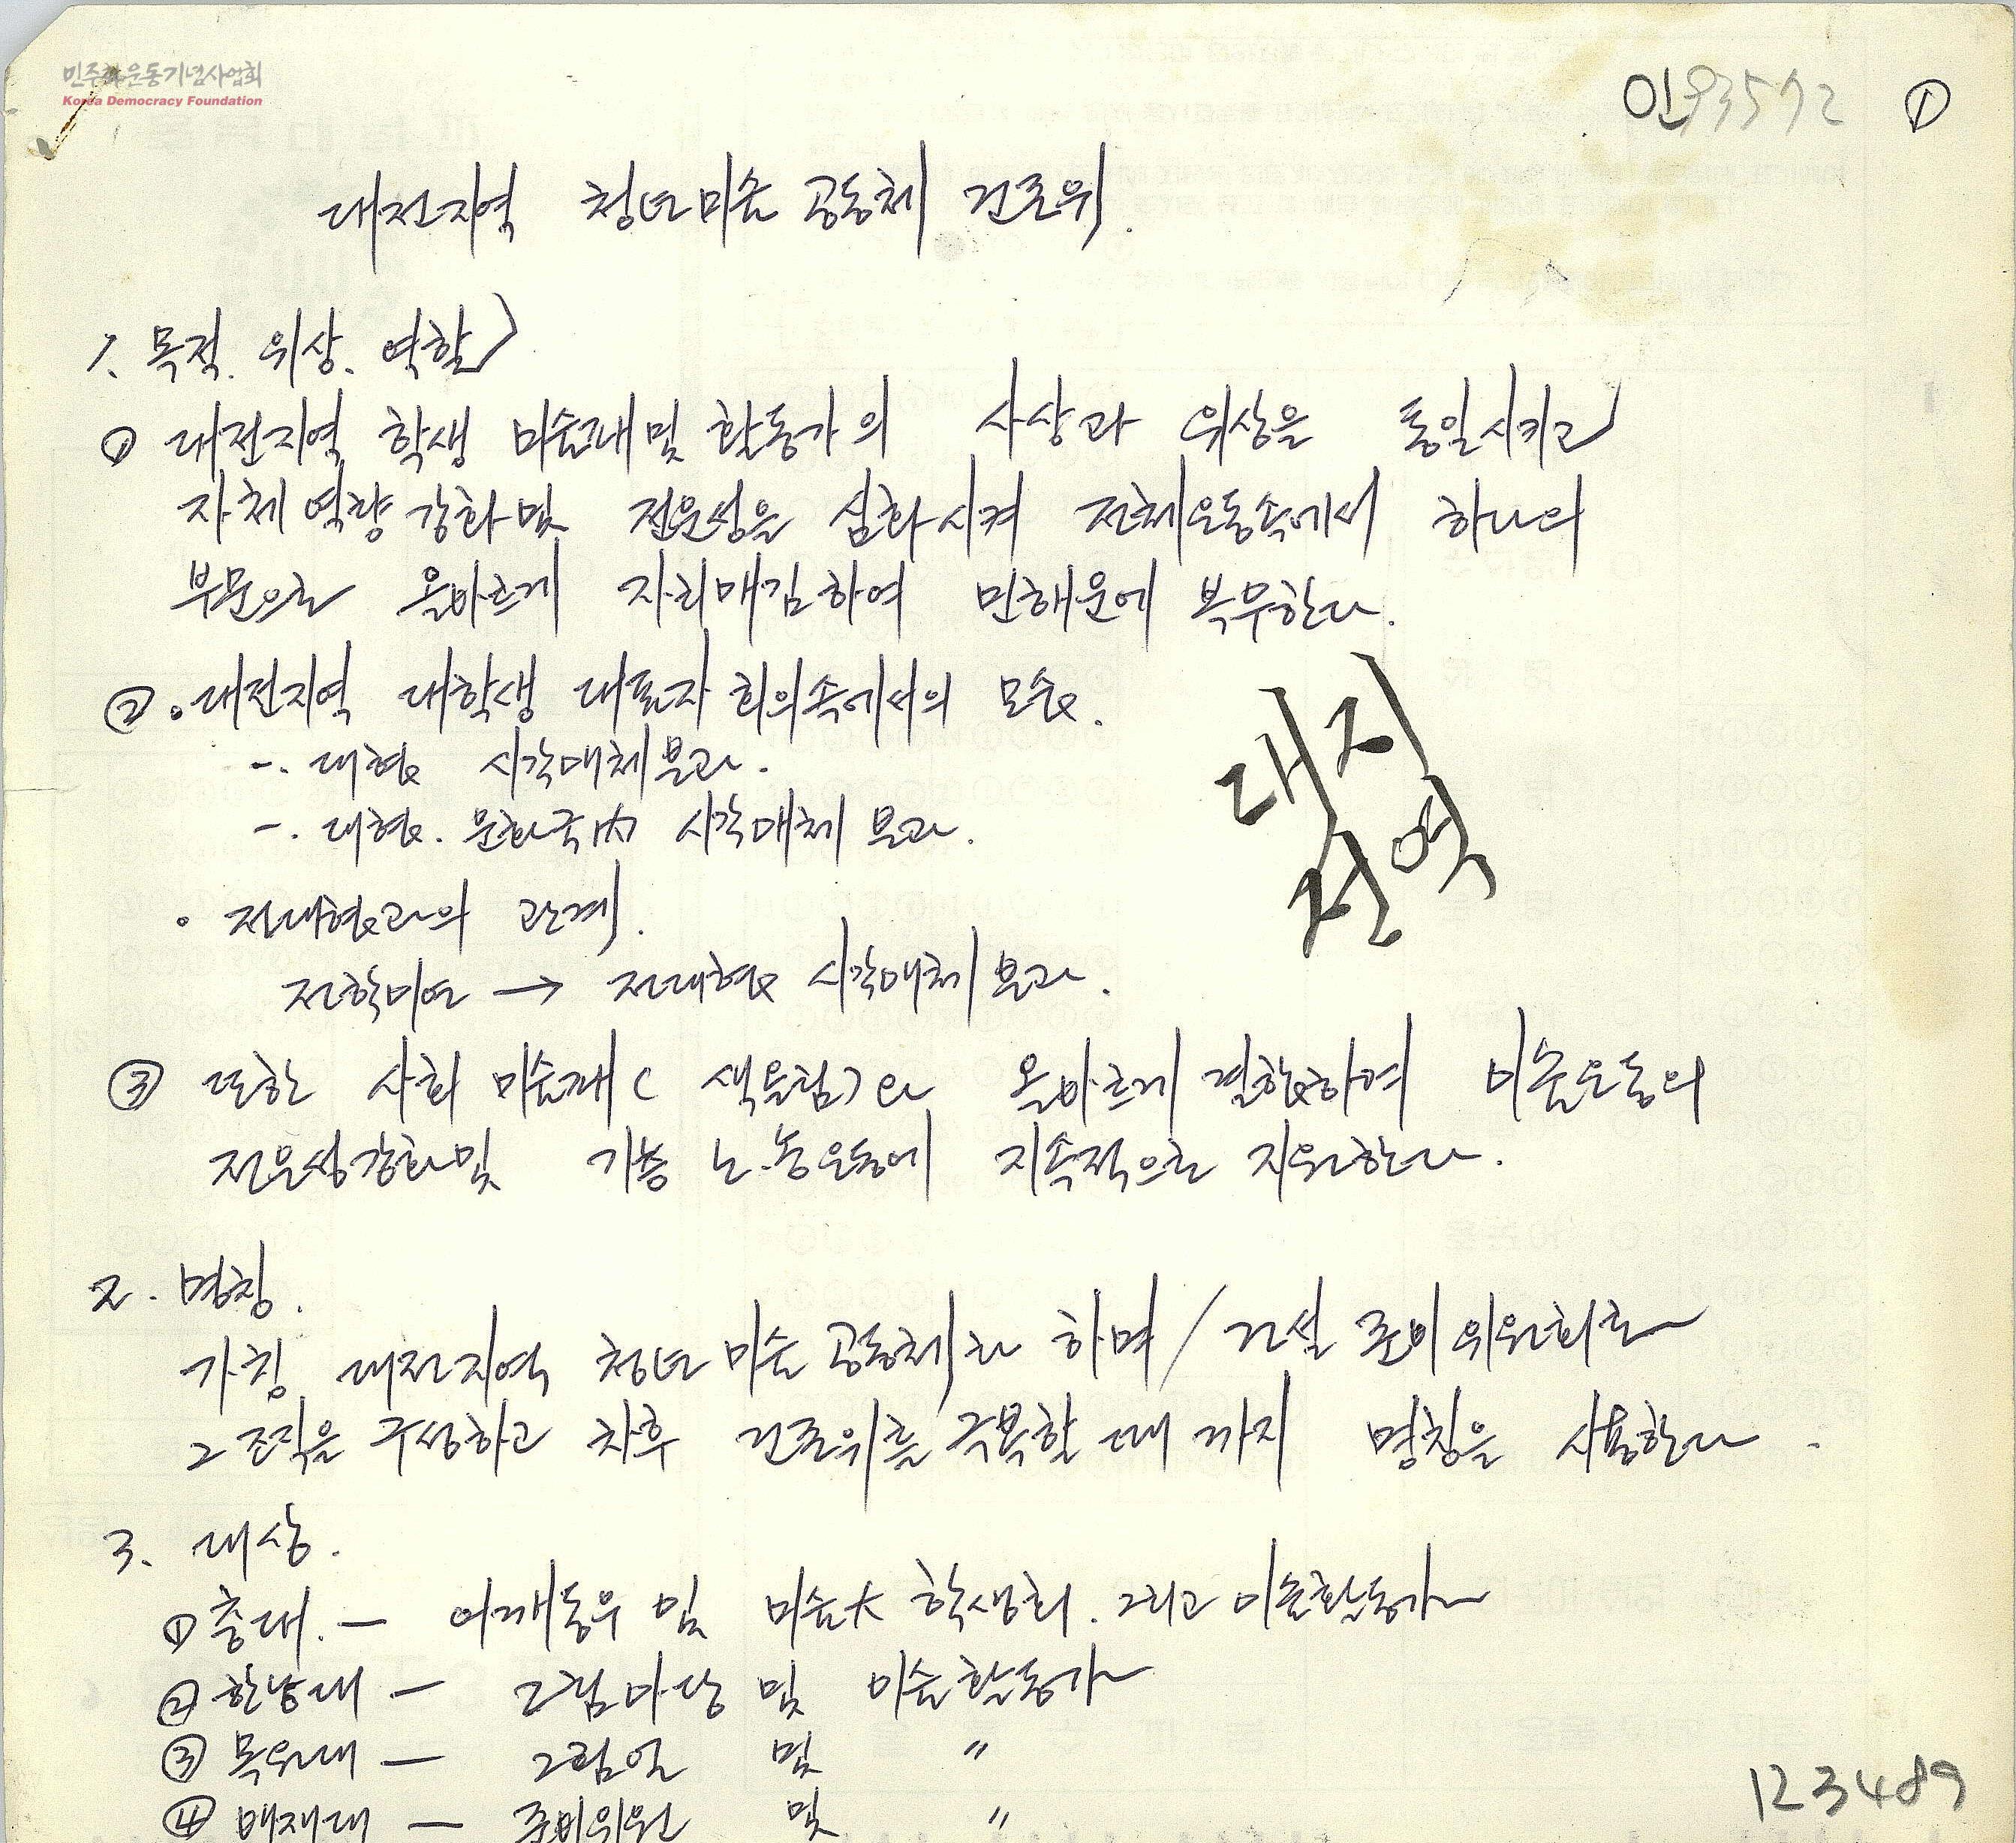 민주화운동기념사업회
Korea Democracy Foundation
인93572 ①
대전지역 청년미술 공동체 건준위.
1. 목적. 위상. 역할
① 대전지역 학생 미술패 및 활동가의 사상과 위상을 통일시키고
자체 역량 강화 및 전문성을 심화시켜 전체운동속에서 하나의
부문으로 올바르게 자리매김하여 민해운에 복무한다.
② · 대전지역 대학생 대표자 회의속에서의 모습.
-. 대협 시각매체분과.
-. 대협. 문화국內 시각매체 분과.
· 전대협과의 관계.
전학미연 → 전대협 시각매체분과.
대지
전역
③ 또한 사회 미술패( )와 올바르게 결합하여 미술운동의
전문성강화 및 기층 노.농운동에 지속적으로 지원한다.
2. 명칭.
가칭 대전지역 청년 미술 공동체라 하며 / 건설 준비위원회로
그 조직을 구성하고 차후 건준위를 극복할 때 까지 명칭을 사용한다.
3. 대상.
① 충대. — 어깨동무 및 미술大 학생회. 그리고 미술활동가
② 한남대 — 그림마당 및 미술활동가
③ 목원대 — 및 〃
④ 배재대 — 준비위원 및 〃
123489